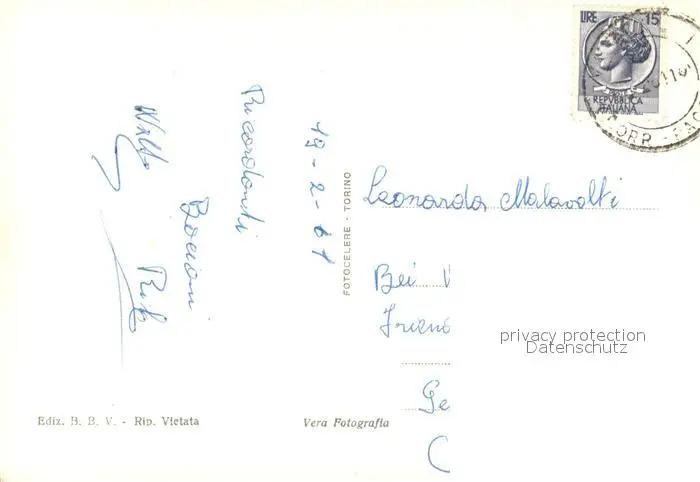 LIRE 15
REPVBBLICA
ITALIANA
CORR.-PAC
19-2-61
Ricordandoti
Bacioni
Walter
Rita
FOTOCELERE - TORINO
Leonarda Malavolti
Bei V
privacy protection
Datenschutz
Ge
C
Ediz. B. B. V. - Rip. Vietata
Vera Fotografia